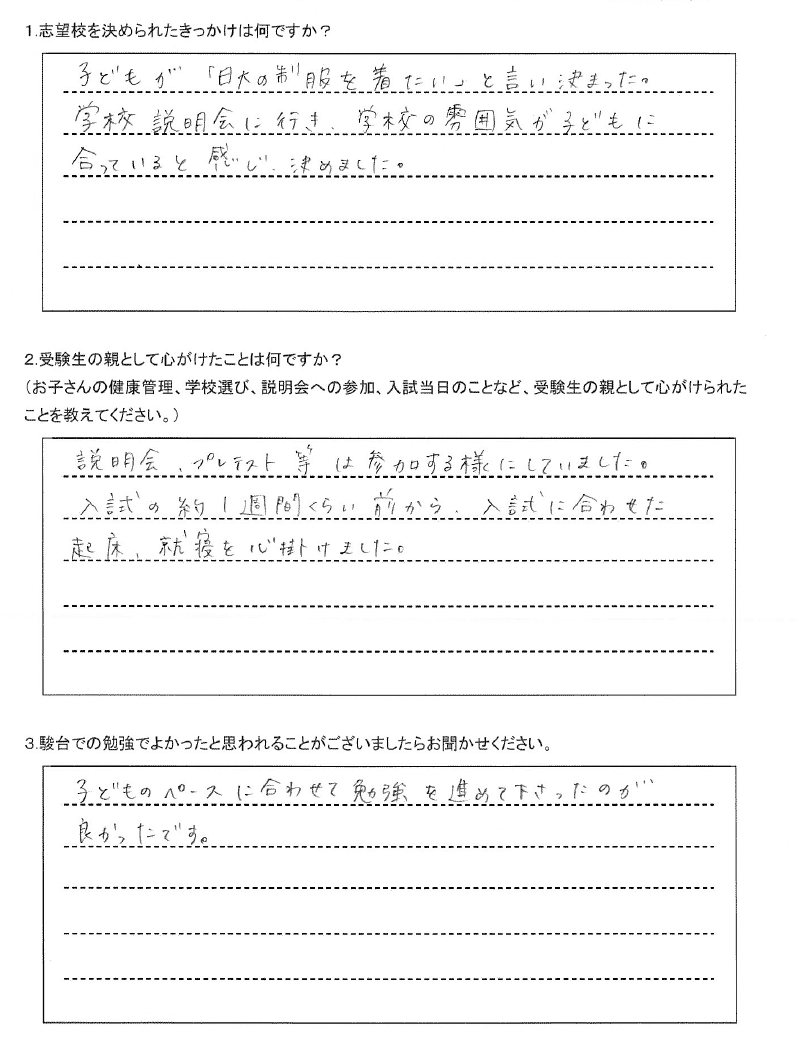 1.志望校を決められたきっかけは何ですか？
子どもが「日大の制服を着たい」と言い決まった。
学校説明会に行き、学校の雰囲気が子どもに
合っていると感じ、決めました。
2.受験生の親として心がけたことは何ですか？
（お子さんの健康管理、学校選び、説明会への参加、入試当日のことなど、受験生の親として心がけられた
ことを教えてください。）
説明会、プレテスト等は参加する様にしていました。
入試の約1週間くらい前から、入試に合わせた
起床、就寝を心掛けました。
3.駿台での勉強でよかったと思われることがございましたらお聞かせください。
子どものペースに合わせて勉強を進めて下さったのが
良かったです。